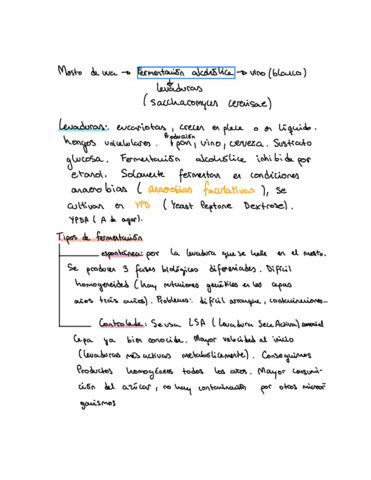 Mosto de uva → Fermentación alcohólica → vino (blanco)
levaduras
(Saccharomyces cerevisae)
Levaduras: eucariotas, crecen en placa o en líquido.
hongos unicelulares. Producción pan, vino, cerveza. Sustrato
glucosa. Fermentación alcohólica inhibida por
etanol. Solamente fermentan en condiciones
anaerobias (anaerobias facultativas), se
cultivan en YPD (Yeast Peptone Dextrose).
YPDA (A de agar).
Tipos de fermentación
espontánea: por la levadura que se halle en el mosto.
Se producen 3 fases biológicas diferenciadas. Difícil
homogeneidad (hay mutaciones genéticas en las cepas
años tras años). Problemas: difícil arranque, contaminaciones...
Controlada: Se usa LSA (Levadura Seca Activa) comercial
Cepa ya bien conocida. Mayor velocidad al inicio
(levaduras más activas metabólicamente). Conseguimos
Productos homogéneos todos los años. Mayor consumi-
ción del azúcar, no hay contaminación por otros micror-
ganismos